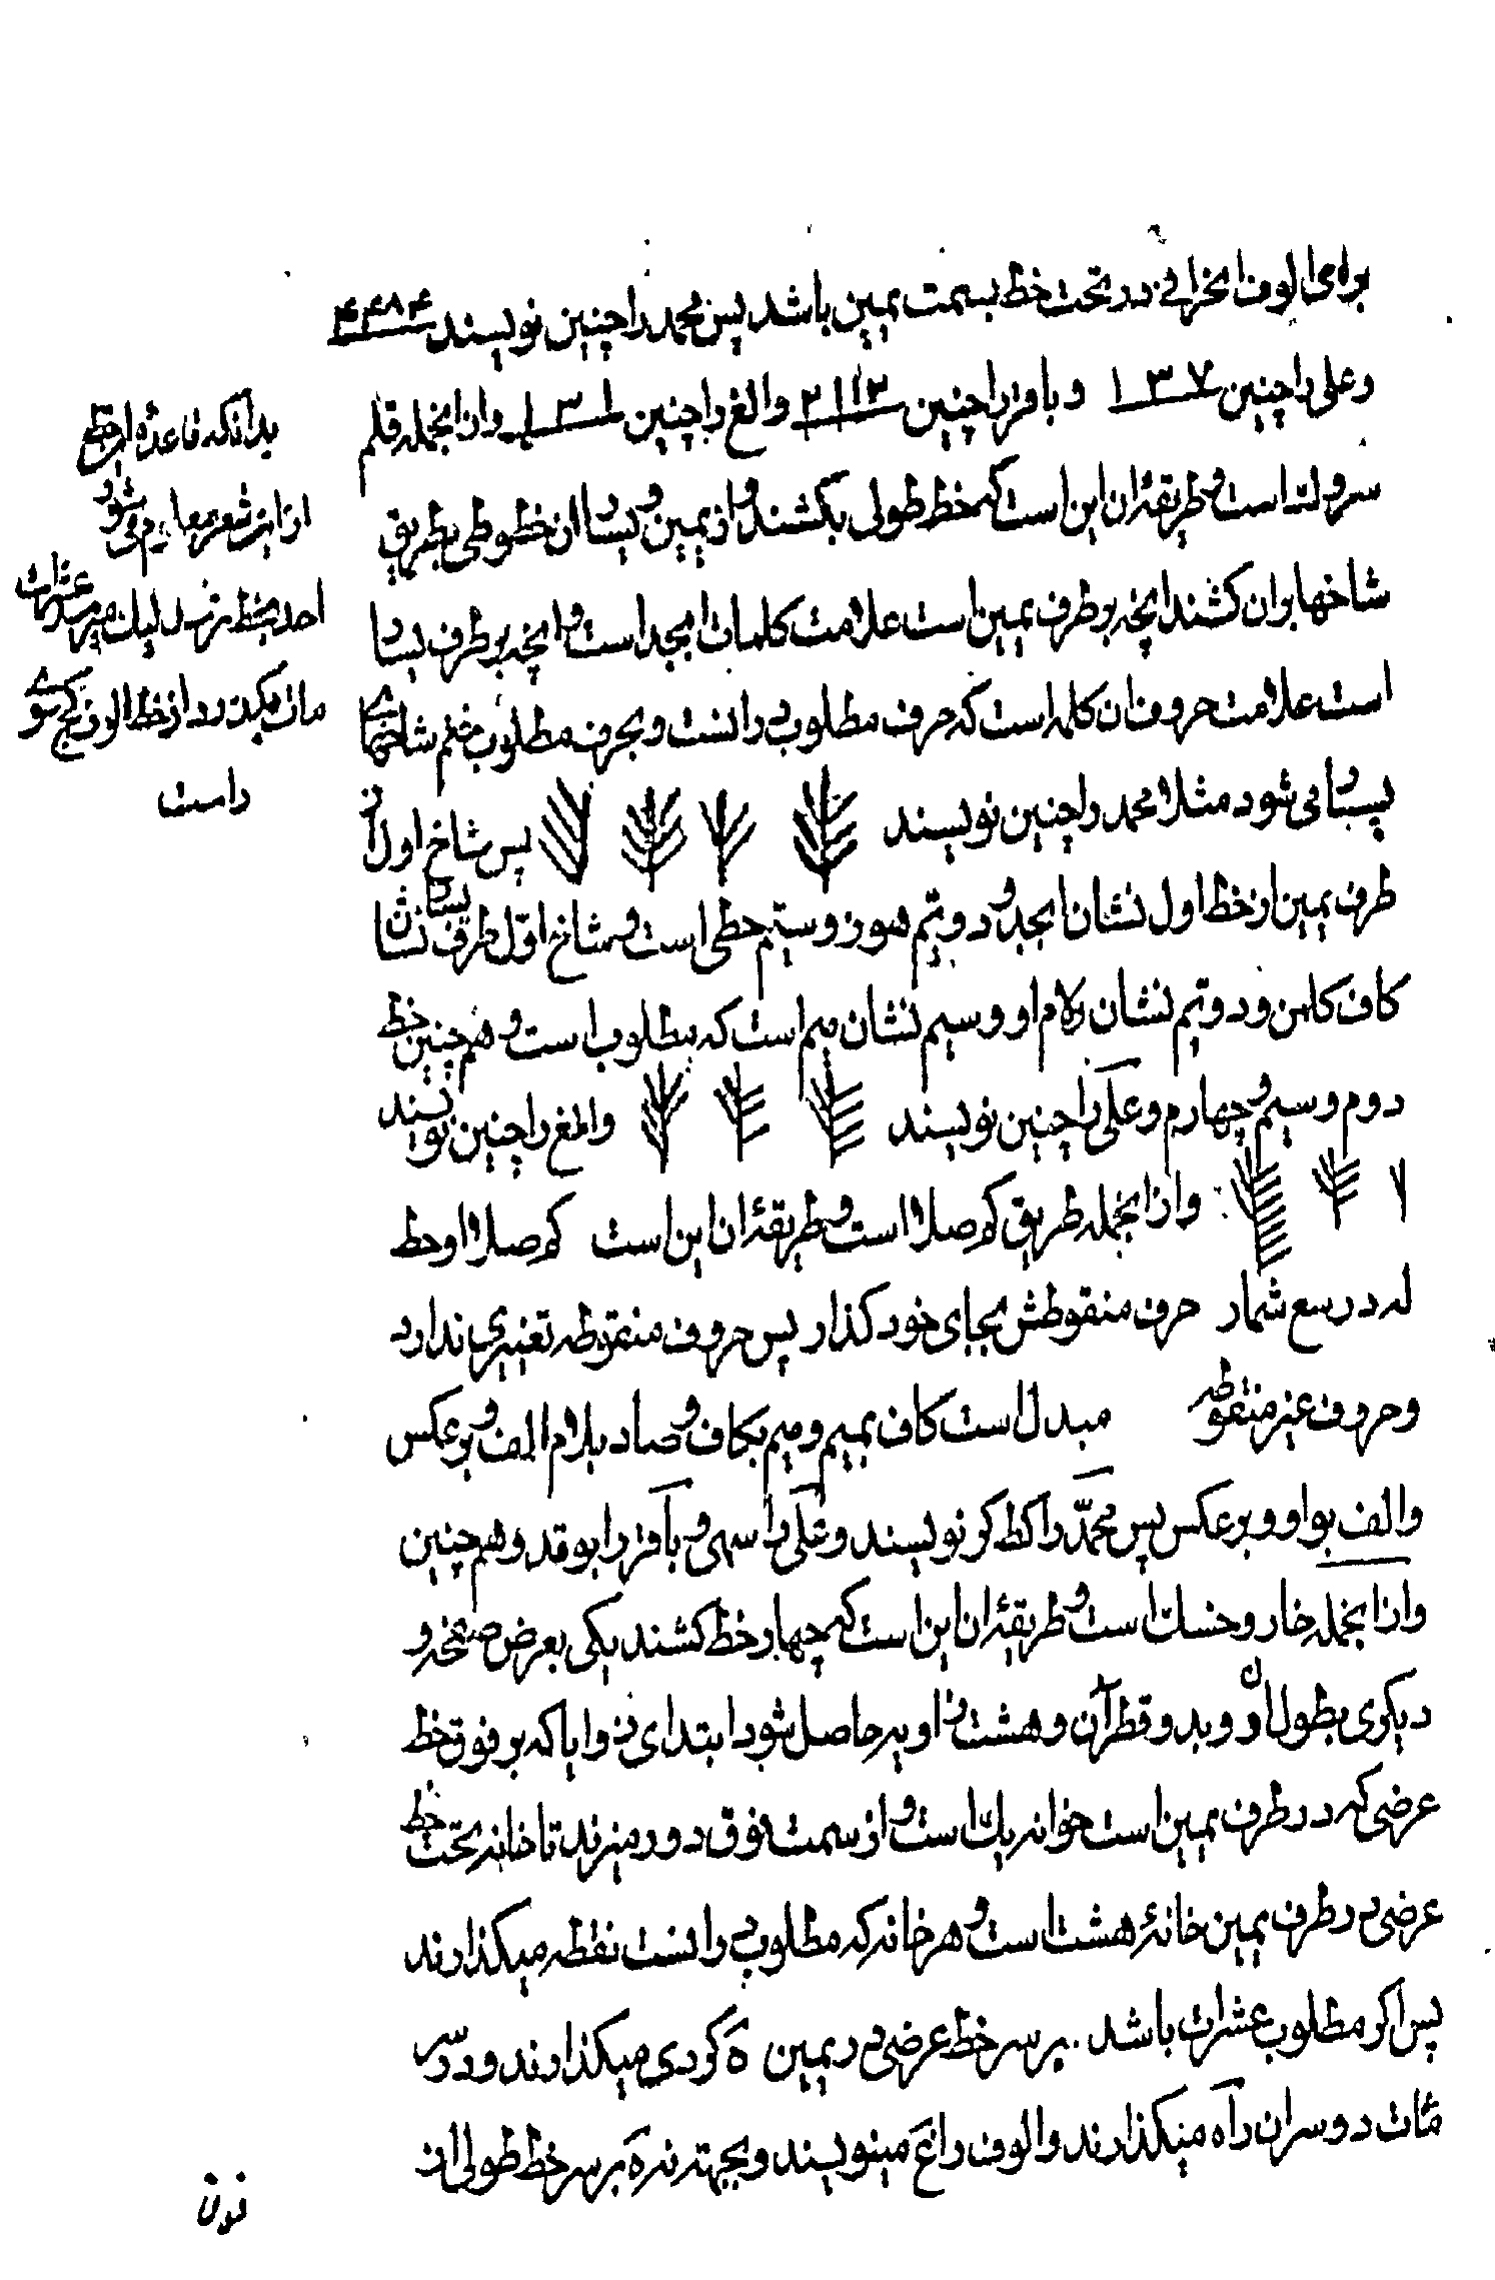 برای الوف انحرافی در تحت خط بسمت یمین باشد پس محمد را چنین نویسند ۴۴۸۴
وعلی را چنین ۱۳۷ و باقر را چنین ۲۱۱۳ والغ را چنین ۱۳۱ وازانجمله قلم
سرولت است و طریقهٔ ان این است که خط طولی بکشند و از یمین و یسار ان خطوطی بطریق
شاخها بران کشند انچه بر طرف یمین است علامت کلمات ابجد است و انچه بر طرف یسار
است علامت حروف ان کلمه است که حرف مطلوب در انست و بحرف مطلوب ختم شاخهای
یسار می شود مثلا محمد را چنین نویسند پس شاخ اول از
طرف یمین از خط اول نشان ابجد و دویم هوز و سیم حطی است و شاخ اول طرف یسار نشان
کاف کلمن و دویم نشان لام او و سیم نشان میم است که مطلوب است و هم چنین خط
دوم و سیم و چهارم و علی را چنین نویسند والغ را چنین نویسند
وازانجمله طریق کم صلا است و طریقهٔ ان این است کم صلا او حط
له در سع شمار حرف منقوطش بجای خود کذار پس حروف منقوطه تغییری ندارد
وحروف غیر منقوطه مبدل است کاف بمیم و میم بکاف و صاد بلام الف و بر عکس
والف بواو و بر عکس پس محمّد را کطکر نویسند و علی را سهی و باقر را بوقد و هم چنین
وازانجمله خار و خسک است و طریقهٔ ان این است که چهار خط کشند یکی بعرض صفحه و
دیکری بطول ان و بدو قطر آن و هشت زاویه حاصل شود ابتدای زوایا که بر فوق خط
عرضی که در طرف یمین است خوانه یک است و از سمت فوق دور میزند تا خانه تحت خط
عرضی در طرف یمین خانهٔ هشت است و هر خانه که مطلوب در انست نقطه میکذارند
پس اکر مطلوب عشرات باشد بر سر خط عرضی در یمین ه کردی میکذارند و در سر
مٔات دو سر ان را ه میکذارند والوف را غ مینویسند و بجهته نره بر سر خط طولی از
بدانکه قاعده
ازاین شعر معلوم می شود
احد بخط
عشرات
مات
از خط الوف کج سوی
راست
فوق